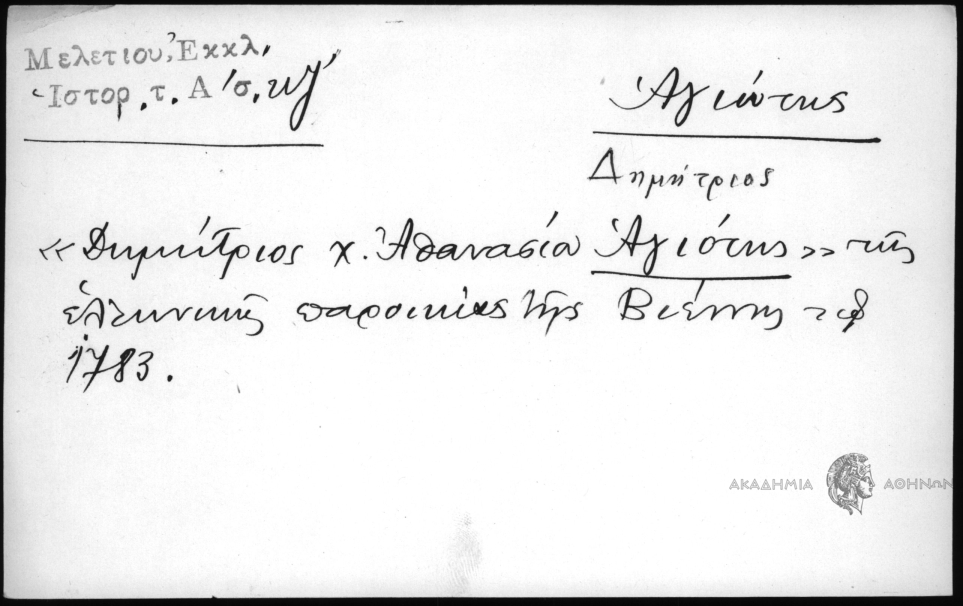 Μελετίου, Ἐκκλ.
Ἱστορ. τ. Α' σ. κζ'
Ἁγιώτης
Δημήτριος
«Δημήτριος χ. Ἀθανασίου Ἁγιότης» τῆς
ἑλληνικῆς παροικίας τῆς Βιέννης τῷ
1783.
ΑΚΑΔΗΜΙΑ ΑΘΗΝΩΝ